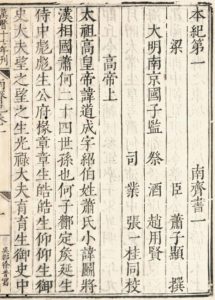 本紀第一 南齊書一
梁 臣蕭子顯 撰
大明南京國子監 祭酒趙用賢
司業張一桂同校
高帝上
太祖高皇帝諱道成字紹伯姓蕭氏小諱鬭將
漢相國蕭何二十四世孫也何子酇定侯延生
侍中彪彪生公府掾章章生皓皓生仰仰生御
史大夫望之望之生光祿大夫育育生御史中